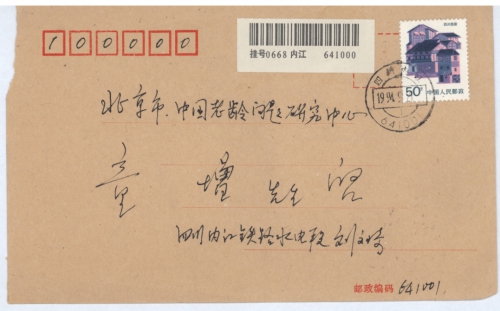 100000
挂号0668 内江 641000
50分 中国人民邮政
北京市.中国老龄问题研究中心
童 增 先生 收
四川内江铁路水电段 刘文
邮政编码 641001